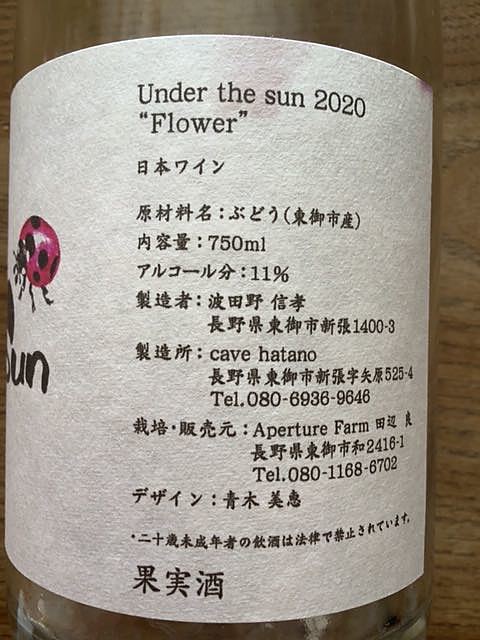 Under the sun 2020
“Flower”
日本ワイン
原材料名：ぶどう（東御市産）
内容量：750ml
アルコール分：11％
製造者：波田野 信孝
長野県東御市新張1400-3
製造所：cave hatano
長野県東御市新張字矢原525-4
Tel.080-6936-9646
栽培・販売元：Aperture Farm 田辺 良
長野県東御市和2416-1
Tel.080-1168-6702
デザイン：青木 美恵
・二十歳未成年者の飲酒は法律で禁止されています。
果実酒
sun